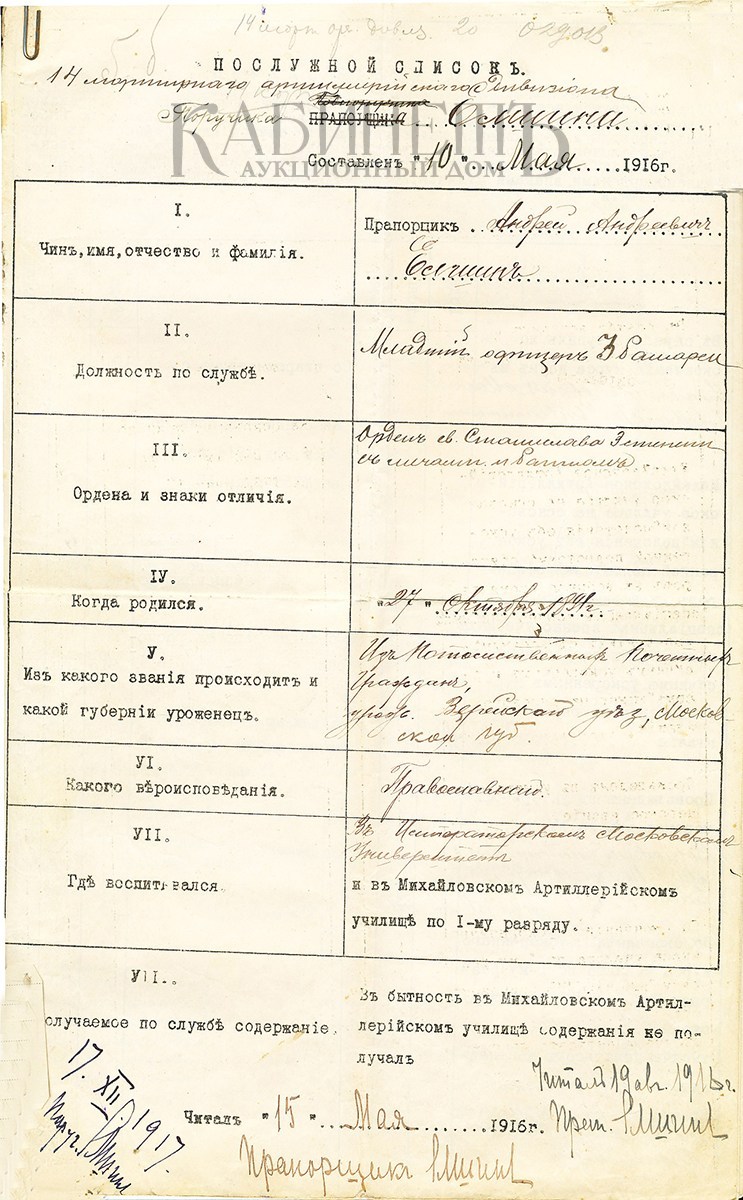 ПОСЛУЖНОЙ СПИСОКЪ.
14 мортирнаго артиллерійскаго Дивизіона
КАБИНЕТЪ
АУКЦИОННЫЙ ДОМ
Подпоручика
Поручика ПРАПОРЩИКА
Составленъ "10" Мая 1916г.
I.
Чинъ, имя, отчество и фамилія.
Прапорщикъ Андрей Андреевичъ
II.
Должность по службѣ.
Младшій офицеръ 3 батареи
III.
Ордена и знаки отличія.
Орденъ св. Станислава 3 степени
съ мечами и бантомъ
IV.
Когда родился.
"27" Октября
V.
Изъ какого званія происходитъ и
какой губерніи уроженецъ.
Изъ Потомственныхъ Почетныхъ
Гражданъ,
урож. Верейскаго уѣз, Москов-
ской губ.
VI.
Какого вѣроисповѣданія.
Православный.
VII.
Гдѣ воспитывался.
Въ Императорскомъ Московскомъ
Университетѣ
и въ Михайловскомъ Артиллерійскомъ
училищѣ по I-му разряду.
VII.
олучаемое по службѣ содержаніе.
Въ бытность въ Михайловскомъ Артил-
лерійскомъ училищѣ содержанія не по-
лучалъ
Читалъ 19 авг. 1916 г.
Читалъ "15" Мая 1916г.
Прапорщикъ
17. XII. 1917.